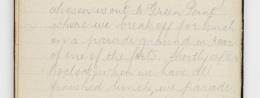 chosen is out to Green Point
where we break off for lunch
on a parade ground in rear
of one of the forts. Shortly after
o'clock when we have all
finished lunch, we parade